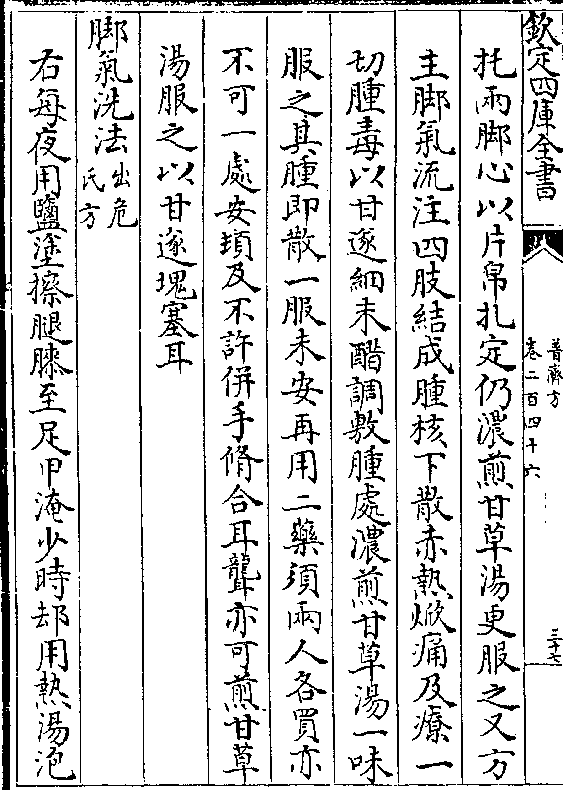 欽定四庫全書
普濟方
卷二百四十六
三十七
托兩脚心以片帛扎定仍濃煎甘草湯更服之又方
主脚氣流注四肢結成腫核下散赤熱焮痛及療一
切腫毒以甘遂細末醋調敷腫處濃煎甘草湯一味
服之其腫即散一服未安再用二藥須兩人各買亦
不可一處安頓及不許併手脩合耳聾亦可煎甘草
湯服之以甘遂塊塞耳
脚氣洗法出危氏方
右每夜用鹽塗擦腿膝至足甲淹少時却用熱湯泡